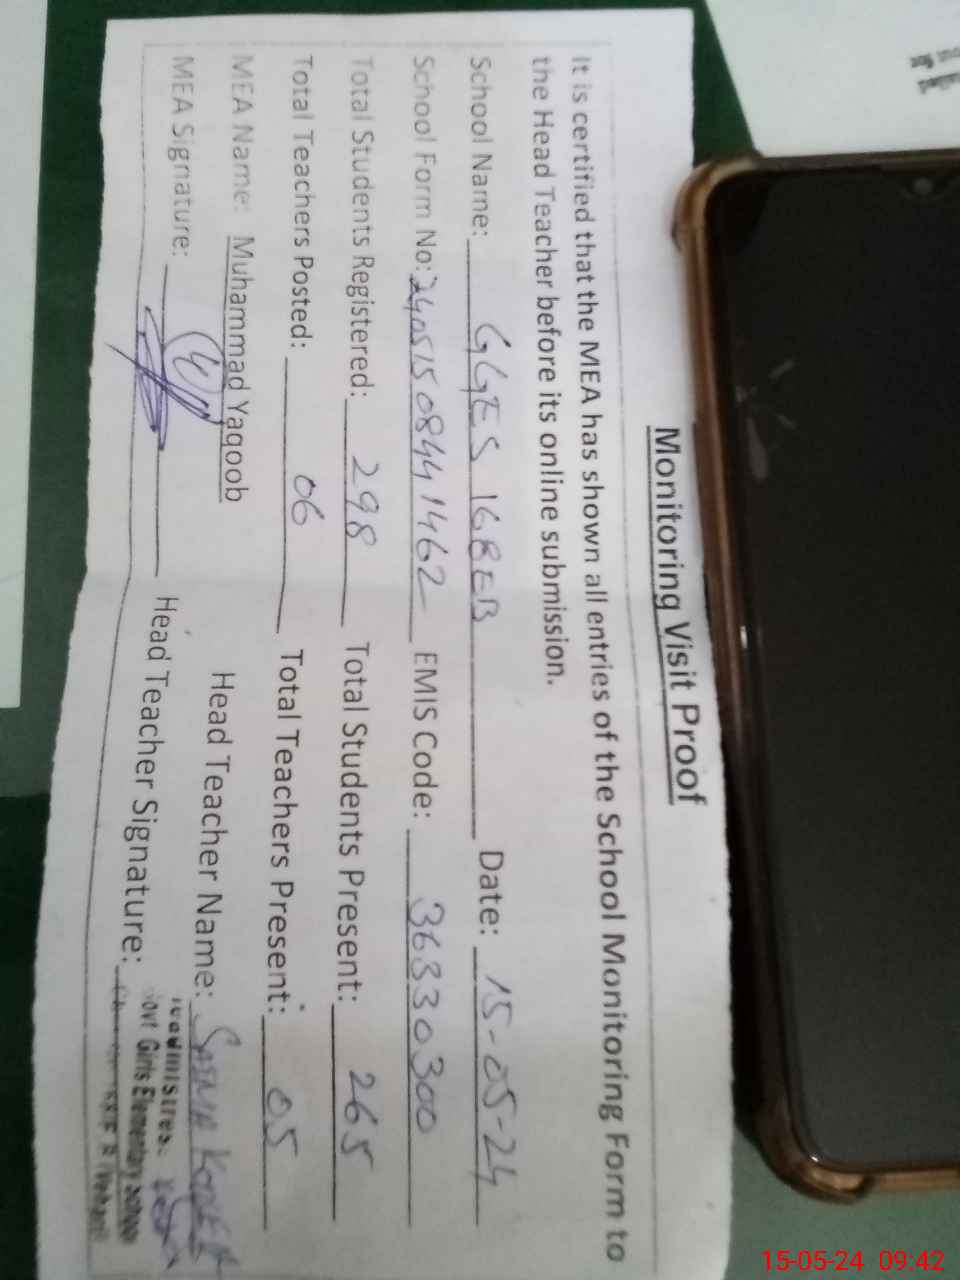 Monitoring Visit Proof
It is certified that the MEA has shown all entries of the School Monitoring Form to
the Head Teacher before its online submission.
School Name: GGES 168EB Date: 15-05-24
School Form No: 24051508441462 EMIS Code: 36330300
Total Students Registered: 298 Total Students Present: 265
Total Teachers Posted: 06 Total Teachers Present: 05
MEA Name: Muhammad Yaqoob Head Teacher Name:
MEA Signature: Head Teacher Signature:
Govt Girls Elementary School
15-05-24 09:42